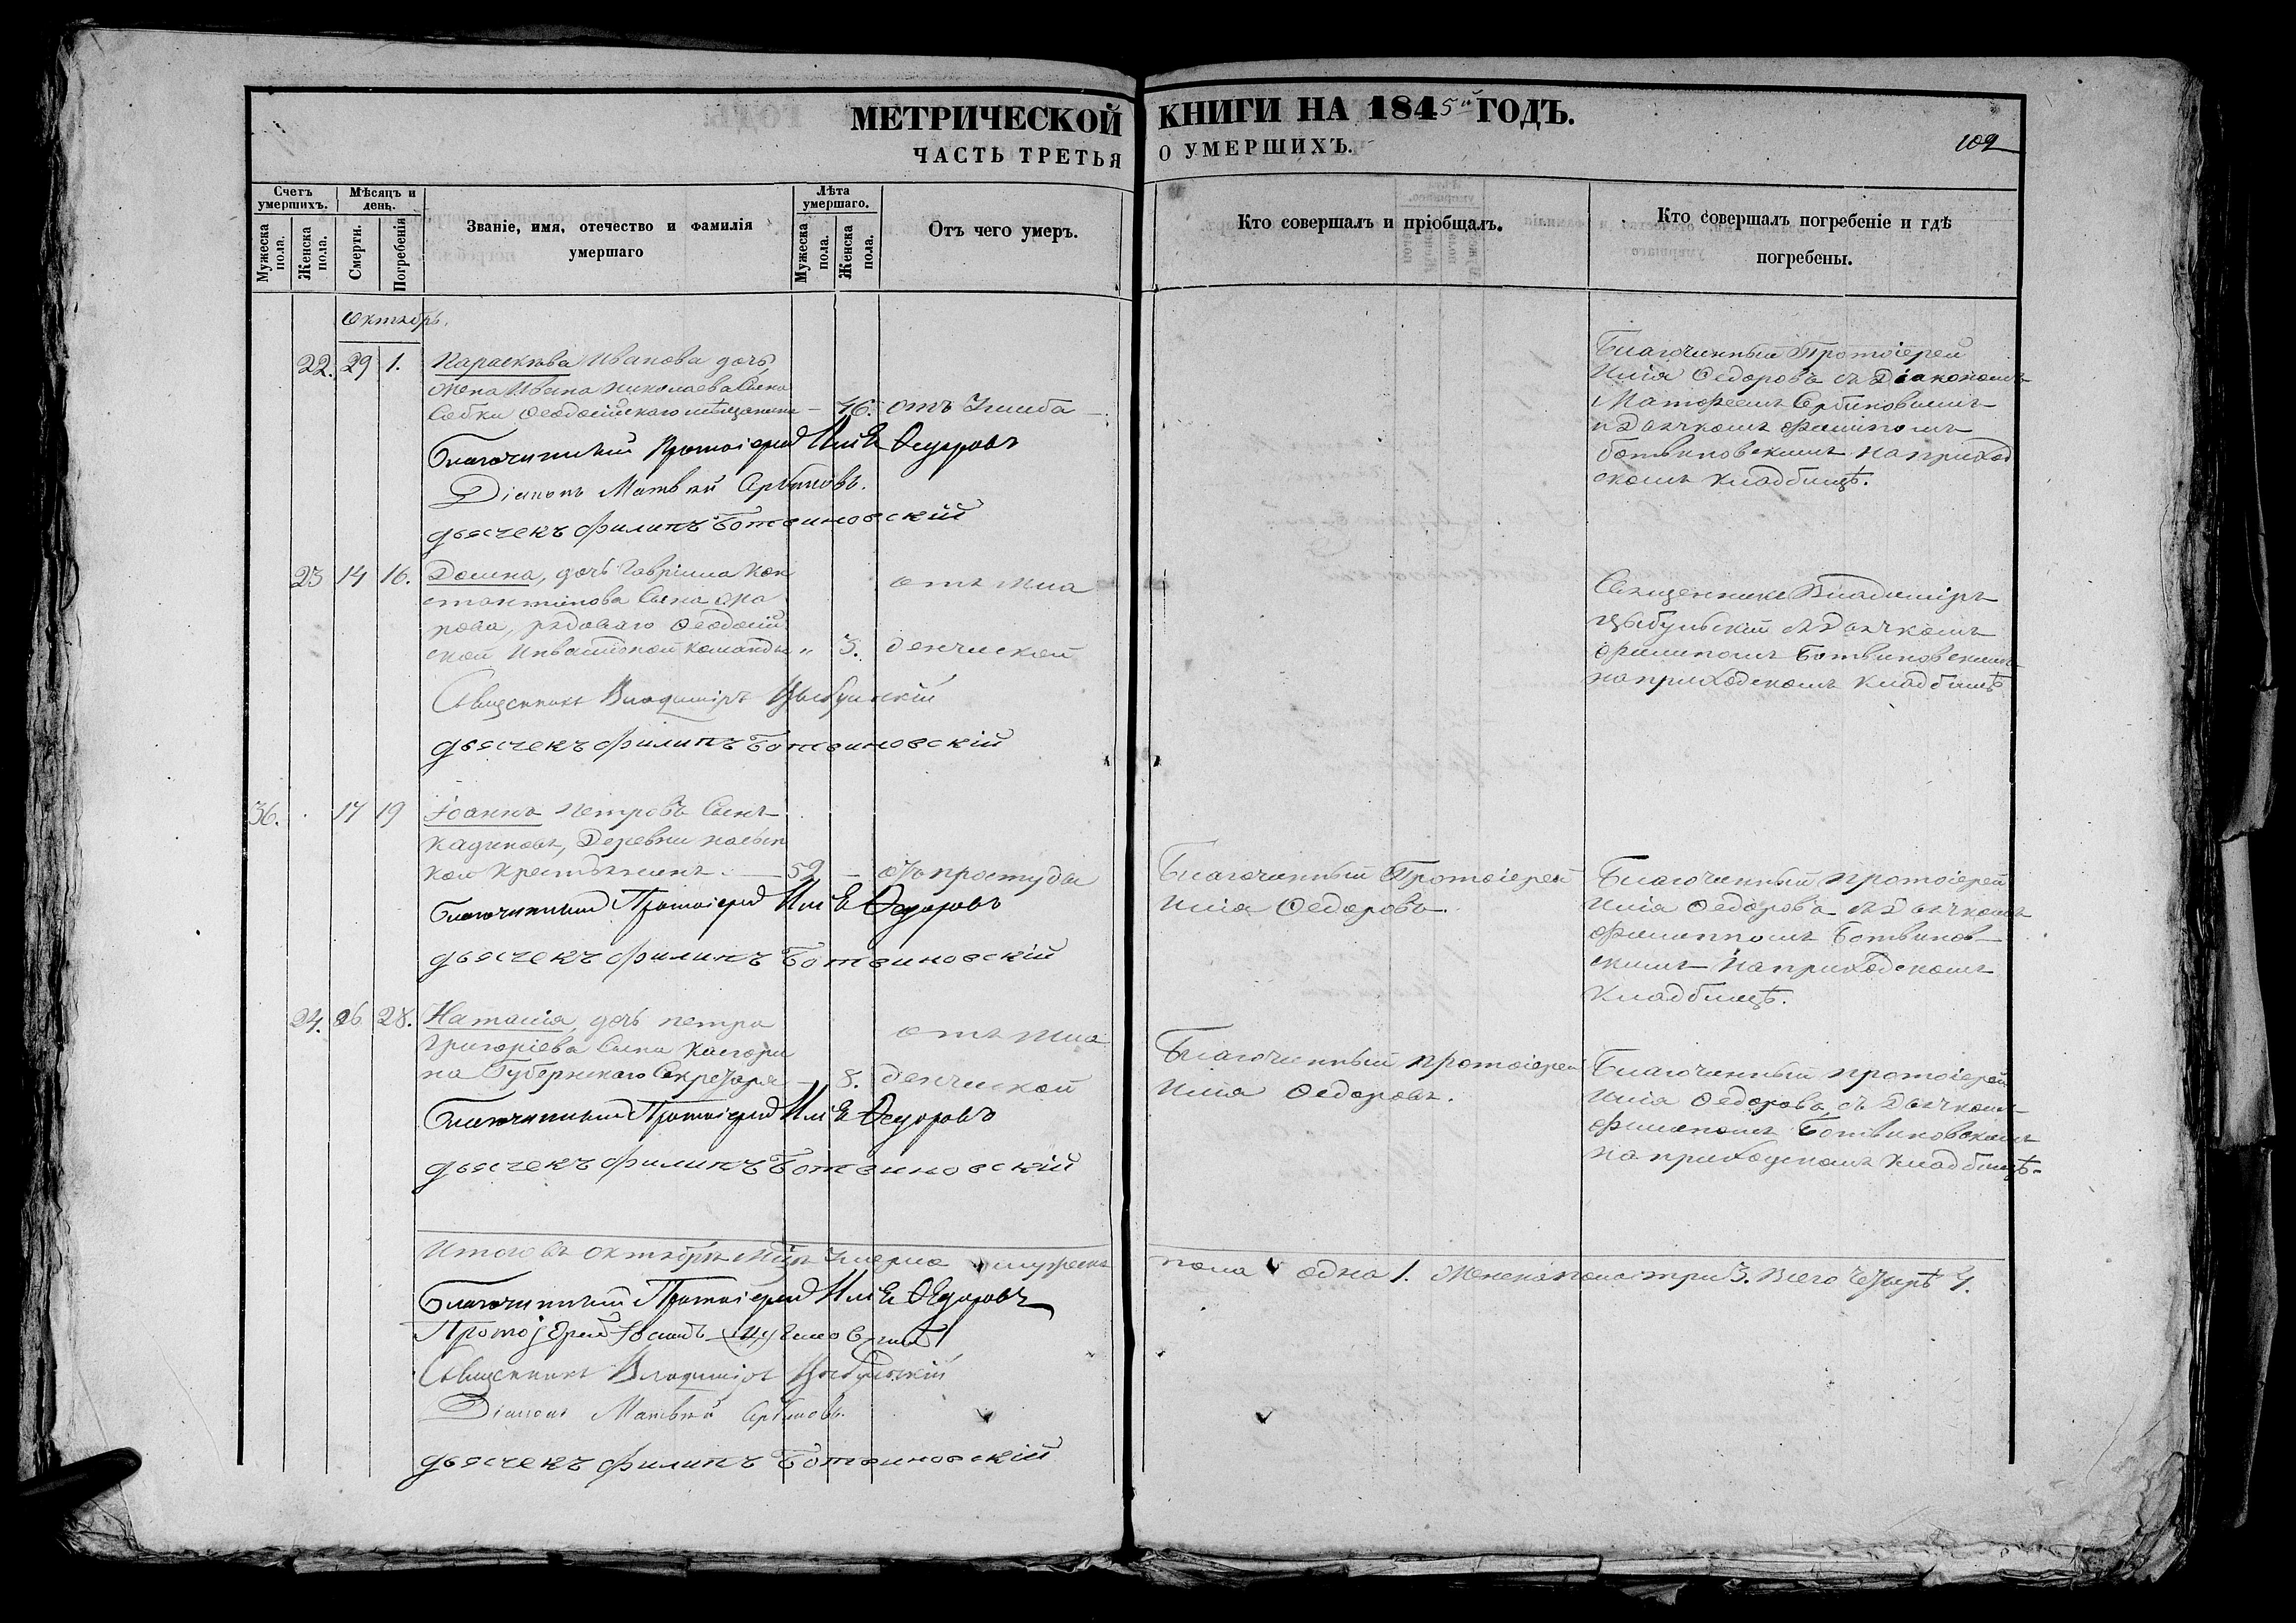 МЕТРИЧЕСКОЙ КНИГИ НА 1845й ГОДЪ.
ЧАСТЬ ТРЕТЬЯ О УМЕРШИХЪ.
102
Счетъ умершихъ.
Мужеска пола.
Женска пола.
Мѣсяцъ и день.
Смерти.
Погребенія
Званіе, имя, отечество и фамилія
умершаго
Лѣта умершаго.
Мужеска пола.
Женска пола.
Отъ чего умеръ.
Кто совершалъ и пріобщалъ.
Кто совершалъ погребеніе и гдѣ
погребены.
Октябрь.
22. 29 1. Параскѣва Иванова дочь
жена Ивана Николаева Сына
Ѳеодосійскаго мѣщанина – 46. отъ
Благочинный Протоіерей Илія Ѳедоровъ
Діаконъ Матвѣй
дьячекъ Филипъ Ботвиновскій
Благочинный Протоіерей
Илія Ѳедоровъ съ Діакономъ
Матфеемъ
и Дьячкомъ Филипомъ
Ботвиновскимъ на приход
скомъ кладбищѣ.
23 14 16. Домна, дочь Гавріила Кон
стантинова Сына
рова, рядоваго Ѳеодосій
ской Инвалидной команды „ 3.
отъ мла
денческой
Священникъ Владиміръ Цыбульскій
дьячекъ Филипъ Ботвиновскій
Священникъ Владиміръ
Цыбульскій съ Дьячкомъ
Филипомъ Ботвиновскимъ
на приходскомъ кладбищѣ
36. 17 19 Іоаннъ Петровъ Сынъ
Деревни
кой крестьянинъ. – 52 – отъ простуды
Благочинный Протоіерей Илія Ѳедоровъ
дьячекъ Филипъ Ботвиновскій
Благочинный Протоіерей
Илія Ѳедоровъ.
Благочинный протоіерей
Илія Ѳедоровъ съ Дьячкомъ
Филиппомъ Ботвинов-
скимъ на приходскомъ
кладбищѣ.
24. 26 28. Наталія, дочь петра
Григоріева Сына
на Губернскаго Секретаря – 8.
отъ мла
денческой
Благочинный Протоіерей Илія Ѳедоровъ
дьячекъ Филипъ Ботвиновскій
Благочинный протоіерей
Илія Ѳедоровъ.
Благочинный протоіерей
Илія Ѳедоровъ съ Дьячкомъ
Филипомъ Ботвиновскимъ
на приходскомъ кладбищѣ.
Итого въ октябрѣ мцѣ умерло мужеска пола одна 1. Женска пола три 3. Всего четыре 4.
Благочинный Протоіерей Илія Ѳедоровъ
Протоіерей
Священникъ Владиміръ Цыбульскій
Діаконъ Матвѣй
дьячекъ Филипъ Ботвиновскій